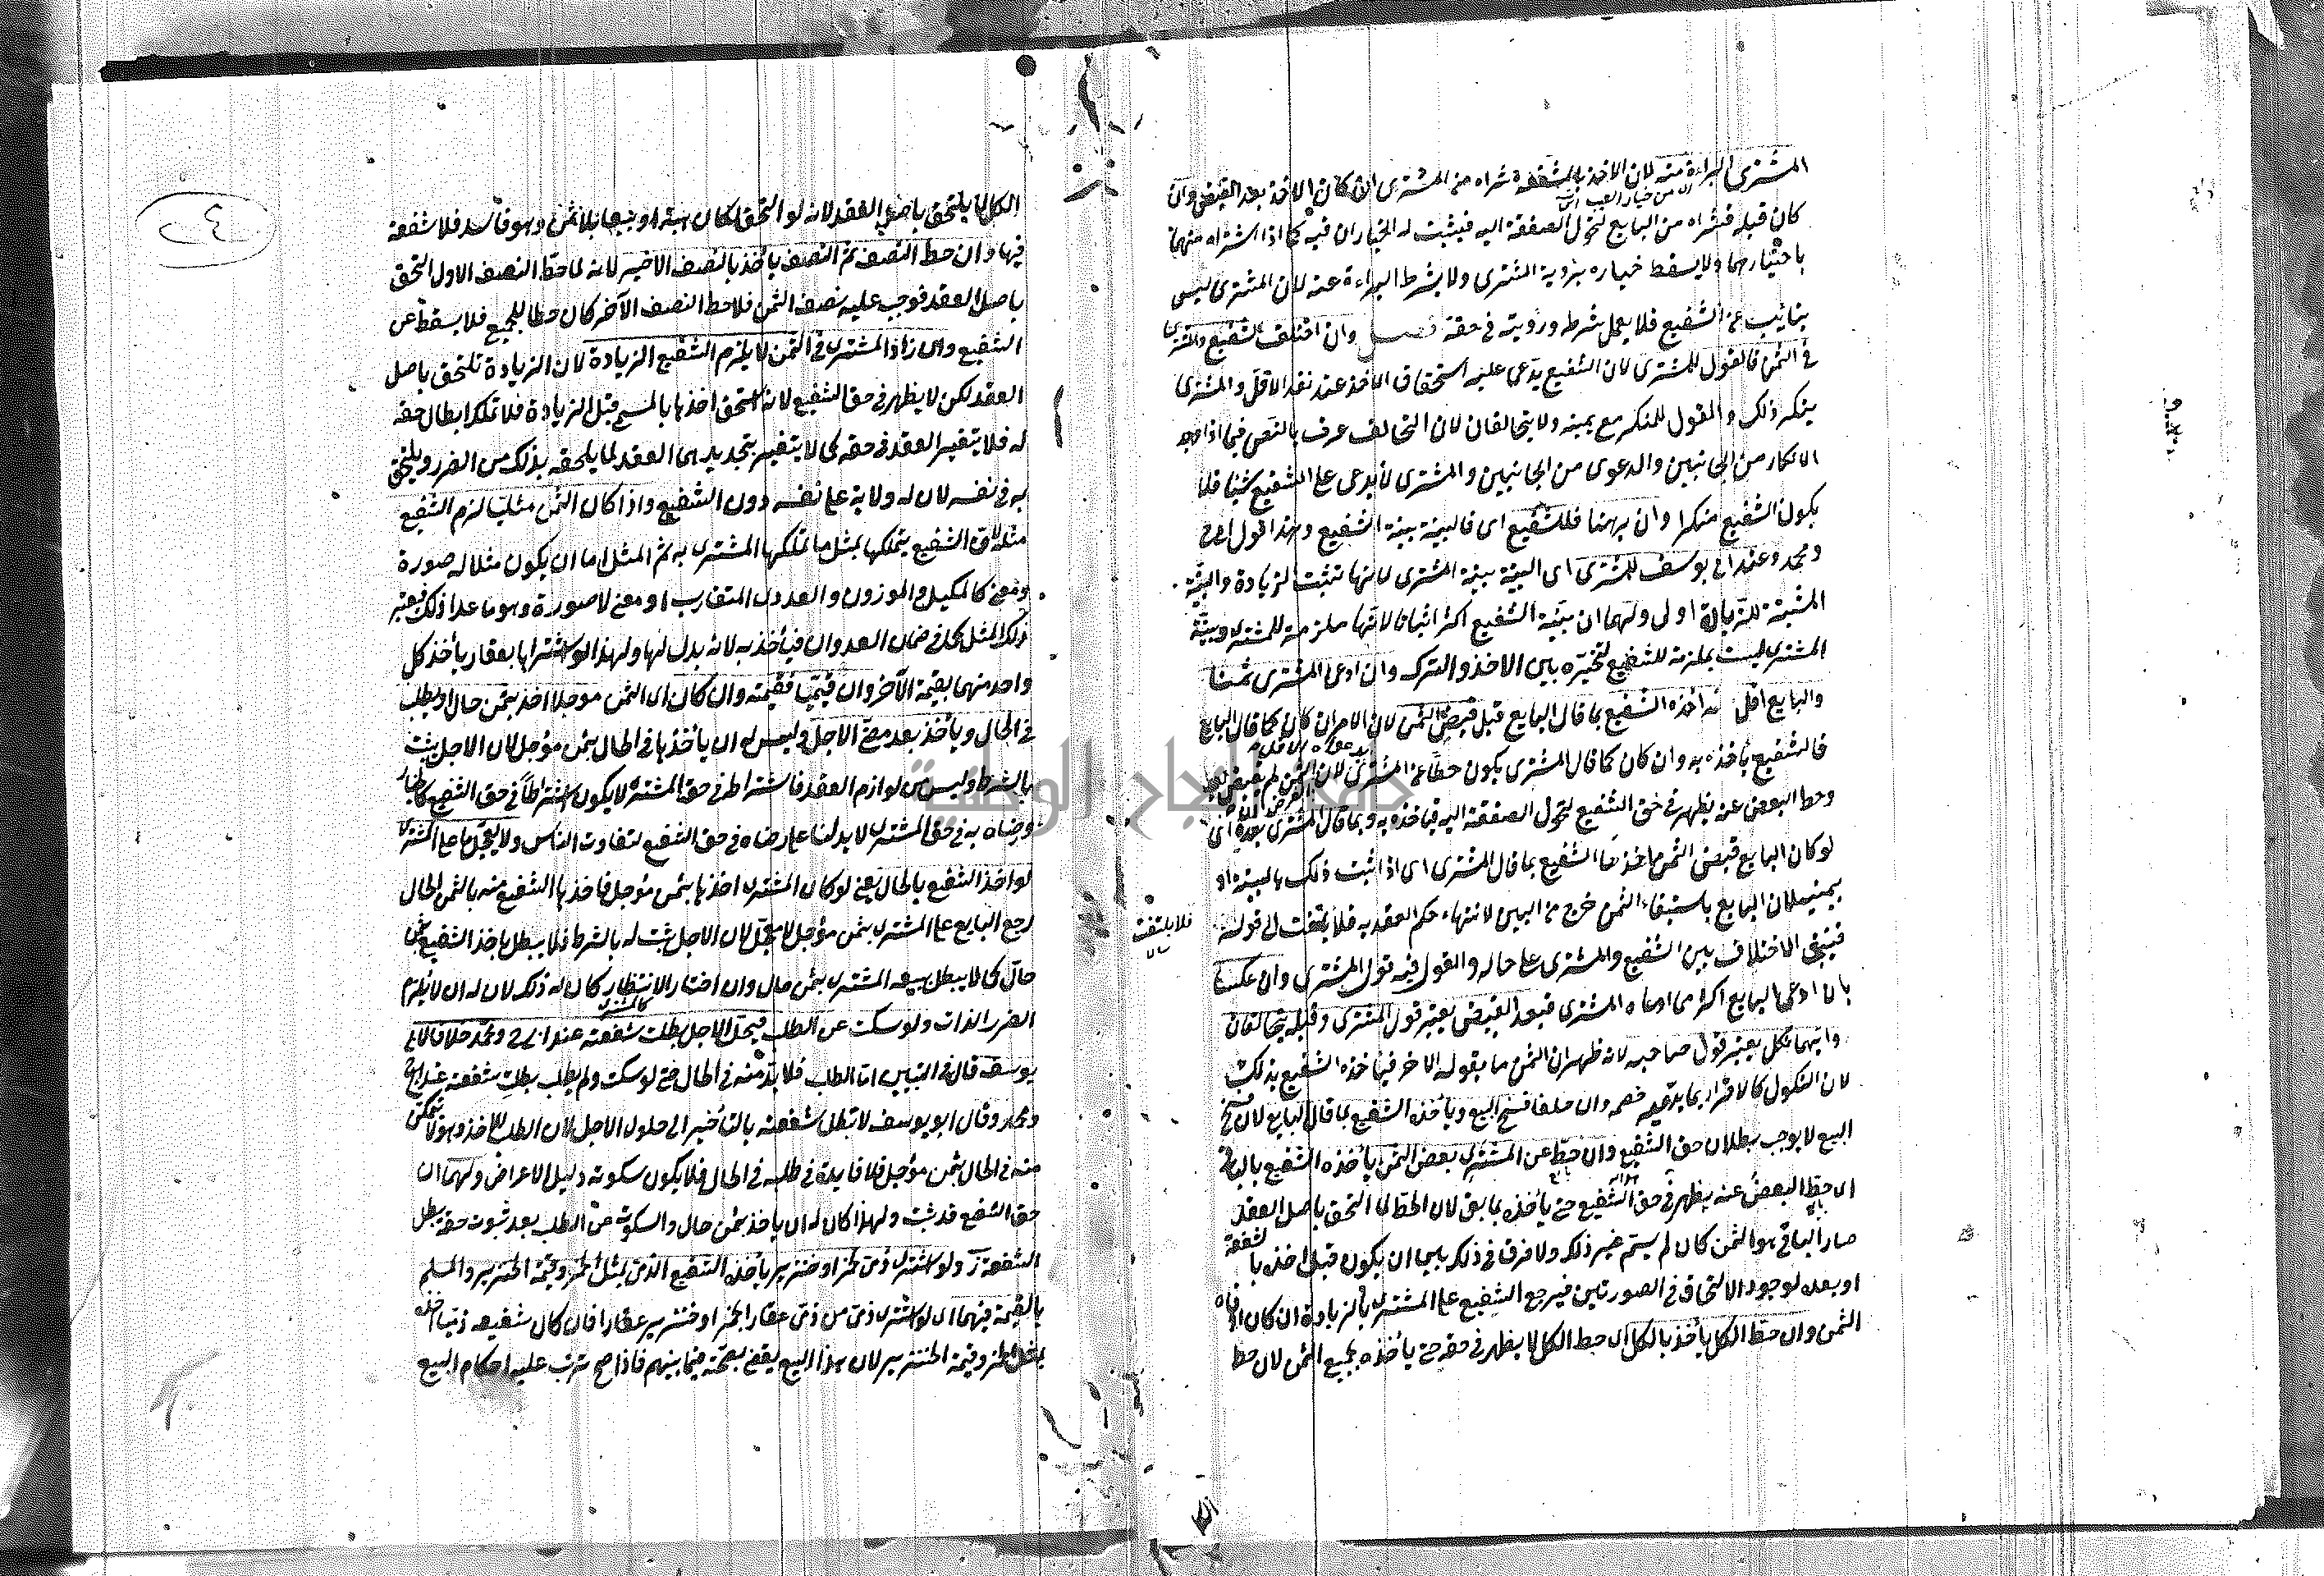 المشترى البراءة منه لان الاخذ بالشفعة شراء من المشترى ان كان الاخذ بعد القبض وان
كان قبله فشراه من البايع لتحول الصفقة اليه فيثبت له الخيار ان فيه كما اذا اشتراه منهما
باختيارهما ولا يسقط خياره برؤية المشترى ولا بشرط البراءة عنه لان المشترى ليس
بنائب عن الشفيع فلا يعمل شرطه ورؤيته فى حقه فصل وان اختلف الشفيع والمشترى
فى الثمن فالقول للمشترى لان الشفيع يدعى عليه استحقاق الاخذ عند نقد الاقل والمشترى
ينكر ذلك والقول للمنكر مع يمينه ولا يتحالفان لان التحالف عرف بالنص فيما اذا وجد
الانكار من الجانبين والدعوى من الجانبين والمشترى لا يدعى على الشفيع شيئا فلا
يكون الشفيع منكرا وان برهنا فللشفيع اى فالبينة بينة الشفيع وهذا قول ابى ح
ومحمد وعند ابى يوسف للمشترى اى البينة بينة المشترى لانها تثبت الزيادة والبينة
المثبتة للزيادة اولى ولهما ان بينة الشفيع اكثر اثباتا لانها ملزمة للمشترى وبينة
المشترى ليست بملزمة للشفيع لتخيره بين الاخذ والترك وان ادعى المشترى ثمنا
والبايع اقل منه اخذه الشفيع بما قال البايع قبل قبض الثمن لان الامر ان كان كما قال البايع
فالشفيع ياخذه به وان كان كما قال المشترى يكون حطا عن المشترى لان الثمن لم يقبض بعد
وحط البعض عنه يظهر فى حق الشفيع لتحول الصفقة اليه فياخذه به وبما قال المشترى بعده اى
لو كان البايع قبض الثمن اخذها الشفيع بما قال المشترى اى اذا اثبت ذلك بالبينة او
بيمينه لان البايع باستيفاء الثمن خرج من البين لانتهاء حكم العقد به فلا يلتفت الى قوله
فلا يلتفت
فيبقى الاختلاف بين الشفيع والمشترى على حاله والقول فيه قول المشترى وان عكسا
بان ادعى البايع اكثر مما ادعاه المشترى فبعد القبض يعتبر قول المشترى وقبله يتحالفان
وايهما نكل يعتبر قول صاحبه لانه ظهر ان الثمن ما يقوله الاخر فياخذه الشفيع بذلك
لان النكول كالاقرار بما يدعيه خصمه وان حلفا فسخ البيع وياخذه الشفيع بما قال البايع لان فسخ
البيع لا يوجب بطلان حق الشفيع وان حط عن المشترى بعض الثمن ياخذه الشفيع بالباقى
اى حط البعض عنه يظهر فى حق الشفيع حتى ياخذه بما بقى لان الحط لما التحق باصل العقد
صار الباقى هو الثمن كان لم يسم غير ذلك ولا فرق فى ذلك بين ان يكون قبل اخذه بالشفعة
او بعده لوجود الالتحاق فى الصورتين فيرجع الشفيع على المشترى بالزيادة ان كان اوفاه
الثمن وان حط الكل ياخذ بالكل اى حط الكل لا يظهر فى حقه حتى ياخذه بجميع الثمن لان حط
الكل
الكل لا يلتحق باصل العقد لانه لو التحق لكان هبة او بيعا بلا ثمن وهو فاسد فلا شفعة
فيها وان حط النصف ثم النصف ياخذ بالنصف الاخير لانه لما حط النصف الاول التحق
باصل العقد فوجب عليه نصف الثمن فلما حط النصف الآخر كان حطا للجميع فلا يسقط عن
الشفيع وان زاد المشترى فى الثمن لا يلزم الشفيع الزيادة لان الزيادة تلتحق باصل
العقد لكن لا يظهر فى حق الشفيع لانه استحق اخذها بالمسمى قبل الزيادة فلا تملك ابطال حقه
له فلا يتغير العقد فى حقه كما لا يتغير بتجديدهما العقد لما يلحقه بذلك من الضرر ويلتحق
به فى نفسه لان له ولاية على نفسه دون الشفيع واذا كان الثمن مثليا لزم الشفيع
مثله لان الشفيع يتملكها بمثل ما تملكها المشترى به ثم المثل اما ان يكون مثلا له صورة
ومعنى كالمكيل والموزون والعددى المتقارب او معنى لا صورة وهو ما عدا ذلك فيعتبر
ذلك المثل كما فى ضمان العدوان فياخذ به لانه بدل لها ولهذا لو اشتراها بعقار ياخذ كل
واحد منهما بقيمة الآخر وان قيميا فقيمته وان كان اى الثمن مؤجلا اخذ بثمن حال او يطلب
فى الحال وياخذ بعد مضى الاجل وليس له ان ياخذها فى الحال بثمن مؤجل لان الاجل يثبت
بالشرط وليس من لوازم العقد فاشتراطه فى حق المشترى لا يكون اشتراطا فى حق الشفيع كالخيار
ورضاه به فى حق المشترى لا يدلنا على رضاه فى حق الشفيع لتفاوت الناس ولا يتعجل ما على المشترى
لو اخذ الشفيع بالحال يعنى لو كان المشترى اخذها بثمن مؤجل فاخذها الشفيع منه بالثمن الحال
رجع البايع على المشترى بثمن مؤجل لا معجل لان الاجل ثبت له بالشرط فلا يبطل باخذ الشفيع بثمن
حال كما لا يبطل بيعه المشترى بثمن حال وان اختار الانتظار كان له ذلك لان له ان لا يلتزم
الضرر الزائد ولو سكت عن الطلب فيحل الاجل بطلت شفعته عند ابى ح ومحمد خلافا لابى
يوسف قال فى التبيين اما الطلب فلا بد منه فى الحال حتى لو سكت ولم يطلب بطلت شفعته عند ابى ح
ومحمد وقال ابو يوسف لا تبطل شفعته بالتاخير الى حلول الاجل لان الطلب للاخذ وهو لا يتمكن
منه فى الحال بثمن مؤجل فلا فايدة فى طلبه فى الحال فلا يكون سكوته دليل الاعراض ولهما ان
حق الشفيع قد ثبت ولهذا كان له ان ياخذ بثمن حال والسكوت عن الطلب بعد ثبوت حقه يبطل
الشفعة ولو اشترى ذمى بخمر او خنزير ياخذه الشفيع الذمى بمثل الخمر وقيمة الخنزير والمسلم
بالقيمة فيهما اى لو اشترى ذمى من ذمى عقارا بخمر او خنزير عقارا فان كان شفيعه ذميا اخذه
بمثل الخمر وقيمة الخنزير لان هذا البيع يقضى بصحته فيما بينهم فاذا صح ترتب عليه احكام البيع